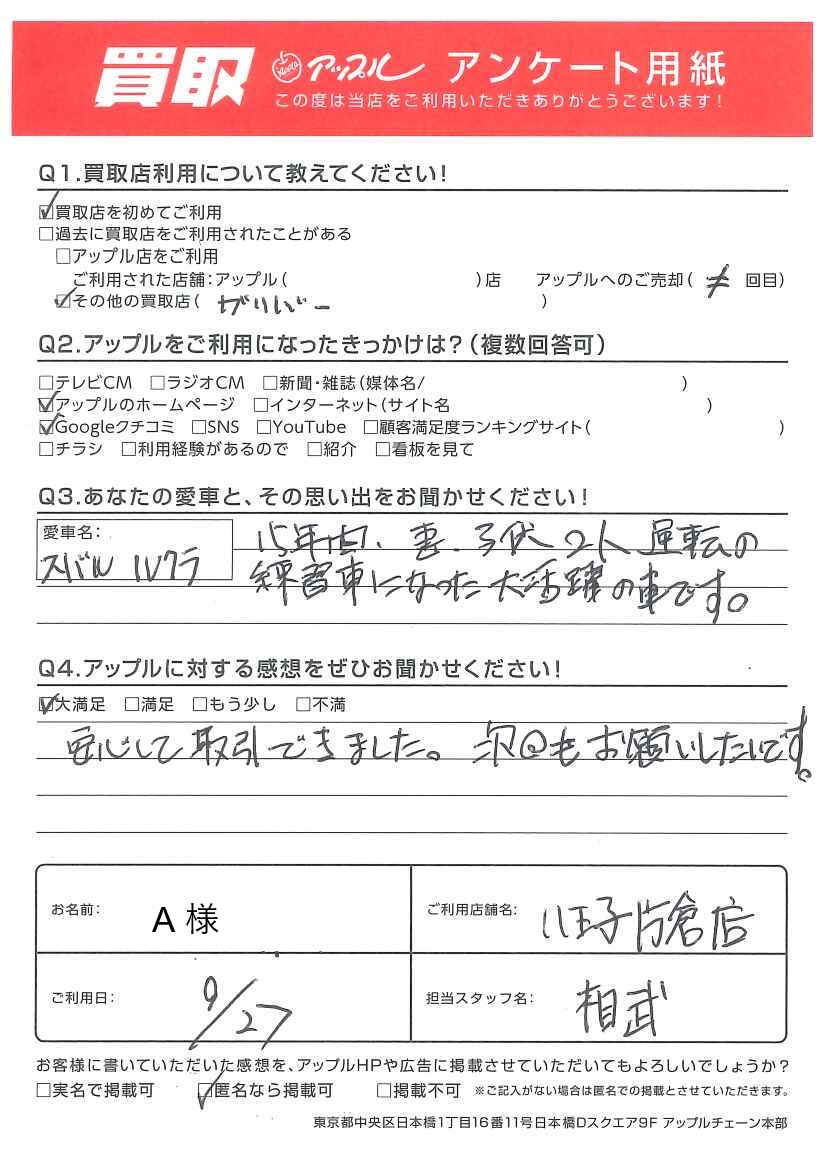 買取 Apple アップル アンケート用紙
この度は当店をご利用いただきありがとうございます!
Q1.買取店利用について教えてください!
☑買取店を初めてご利用
□過去に買取店をご利用されたことがある
□アップル店をご利用
ご利用された店舗:アップル( )店 アップルへのご売却( 回目)
☑その他の買取店( )
Q2.アップルをご利用になったきっかけは?(複数回答可)
□テレビCM □ラジオCM □新聞・雑誌(媒体名/ )
☑アップルのホームページ □インターネット(サイト名 )
☑Googleクチコミ □SNS □YouTube □顧客満足度ランキングサイト( )
□チラシ □利用経験があるので □紹介 □看板を見て
Q3.あなたの愛車と、その思い出をお聞かせください!
愛車名:
スバル ルクラ
15年間、妻、子供2人運転の
練習車になった大活躍の車です。
Q4.アップルに対する感想をぜひお聞かせください!
☑大満足 □満足 □もう少し □不満
安心して取引できました。次回もお願いしたいです。
お名前: A 様
ご利用店舗名: 八王子片倉店
ご利用日: 9/27
担当スタッフ名: 相武
お客様に書いていただいた感想を、アップルHPや広告に掲載させていただいてもよろしいでしょうか?
□実名で掲載可 ☑匿名なら掲載可 □掲載不可 ※ご記入がない場合は匿名での掲載とさせていただきます。
東京都中央区日本橋1丁目16番11号日本橋Dスクエア9F アップルチェーン本部